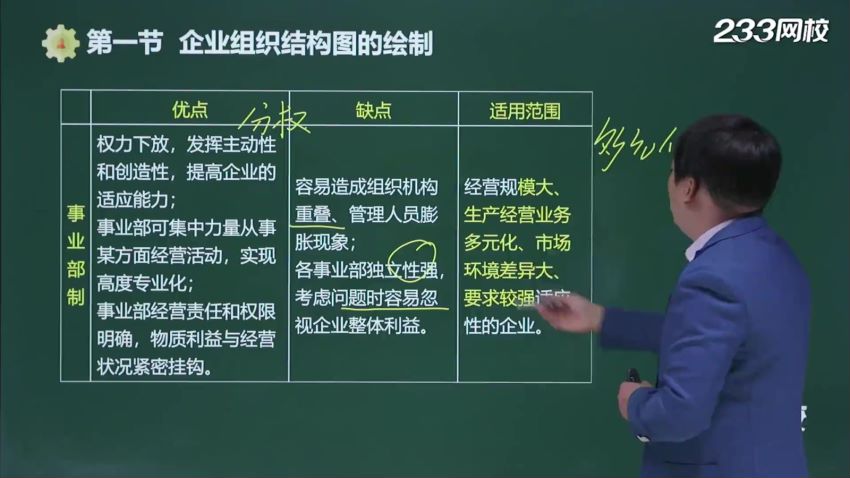 第一节 企业组织结构图的绘制
233网校
优点
缺点
适用范围
分权
事业部制
权力下放，发挥主动性
和创造性，提高企业的
适应能力；
事业部可集中力量从事
某方面经营活动，实现
高度专业化；
事业部经营责任和权限
明确，物质利益与经营
状况紧密挂钩。
容易造成组织机构
重叠、管理人员膨
胀现象；
各事业部独立性强，
考虑问题时容易忽
视企业整体利益。
经营规模大、
生产经营业务
多元化、市场
环境差异大、
要求较强适应
性的企业。
多元化